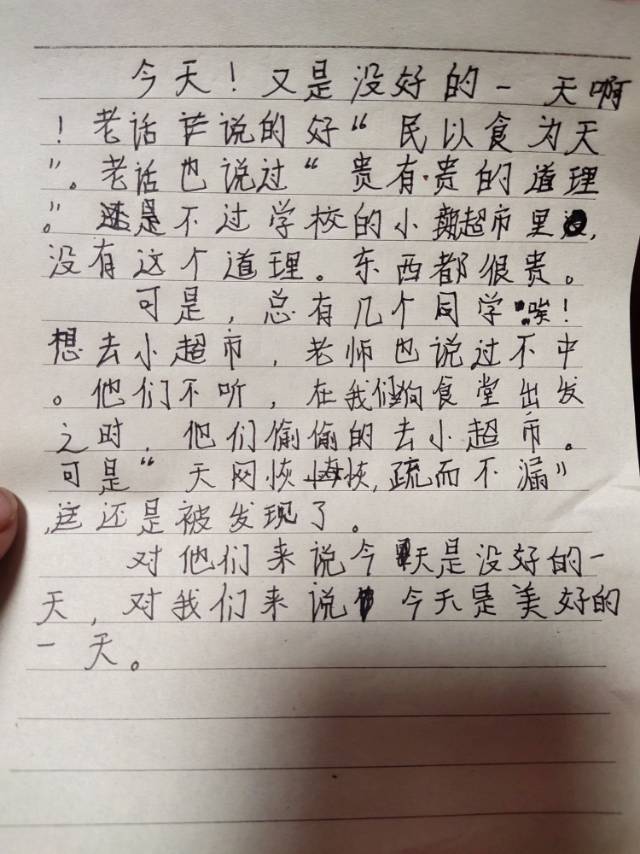 今天！又是没好的一天啊
！老话说的好“民以食为天
”。老话也说过“贵有贵的道理
”。是不过学校的小超市里，
没有这个道理。东西都很贵。
可是，总有几个同学唉！
想去小超市，老师也说过不中
。他们不听，在我们向食堂出发
之时，他们偷偷的去小超市。
可是“天网恢恢，疏而不漏”
，还是被发现了。
对他们来说今天是没好的一
天，对我们来说今天是美好的
一天。